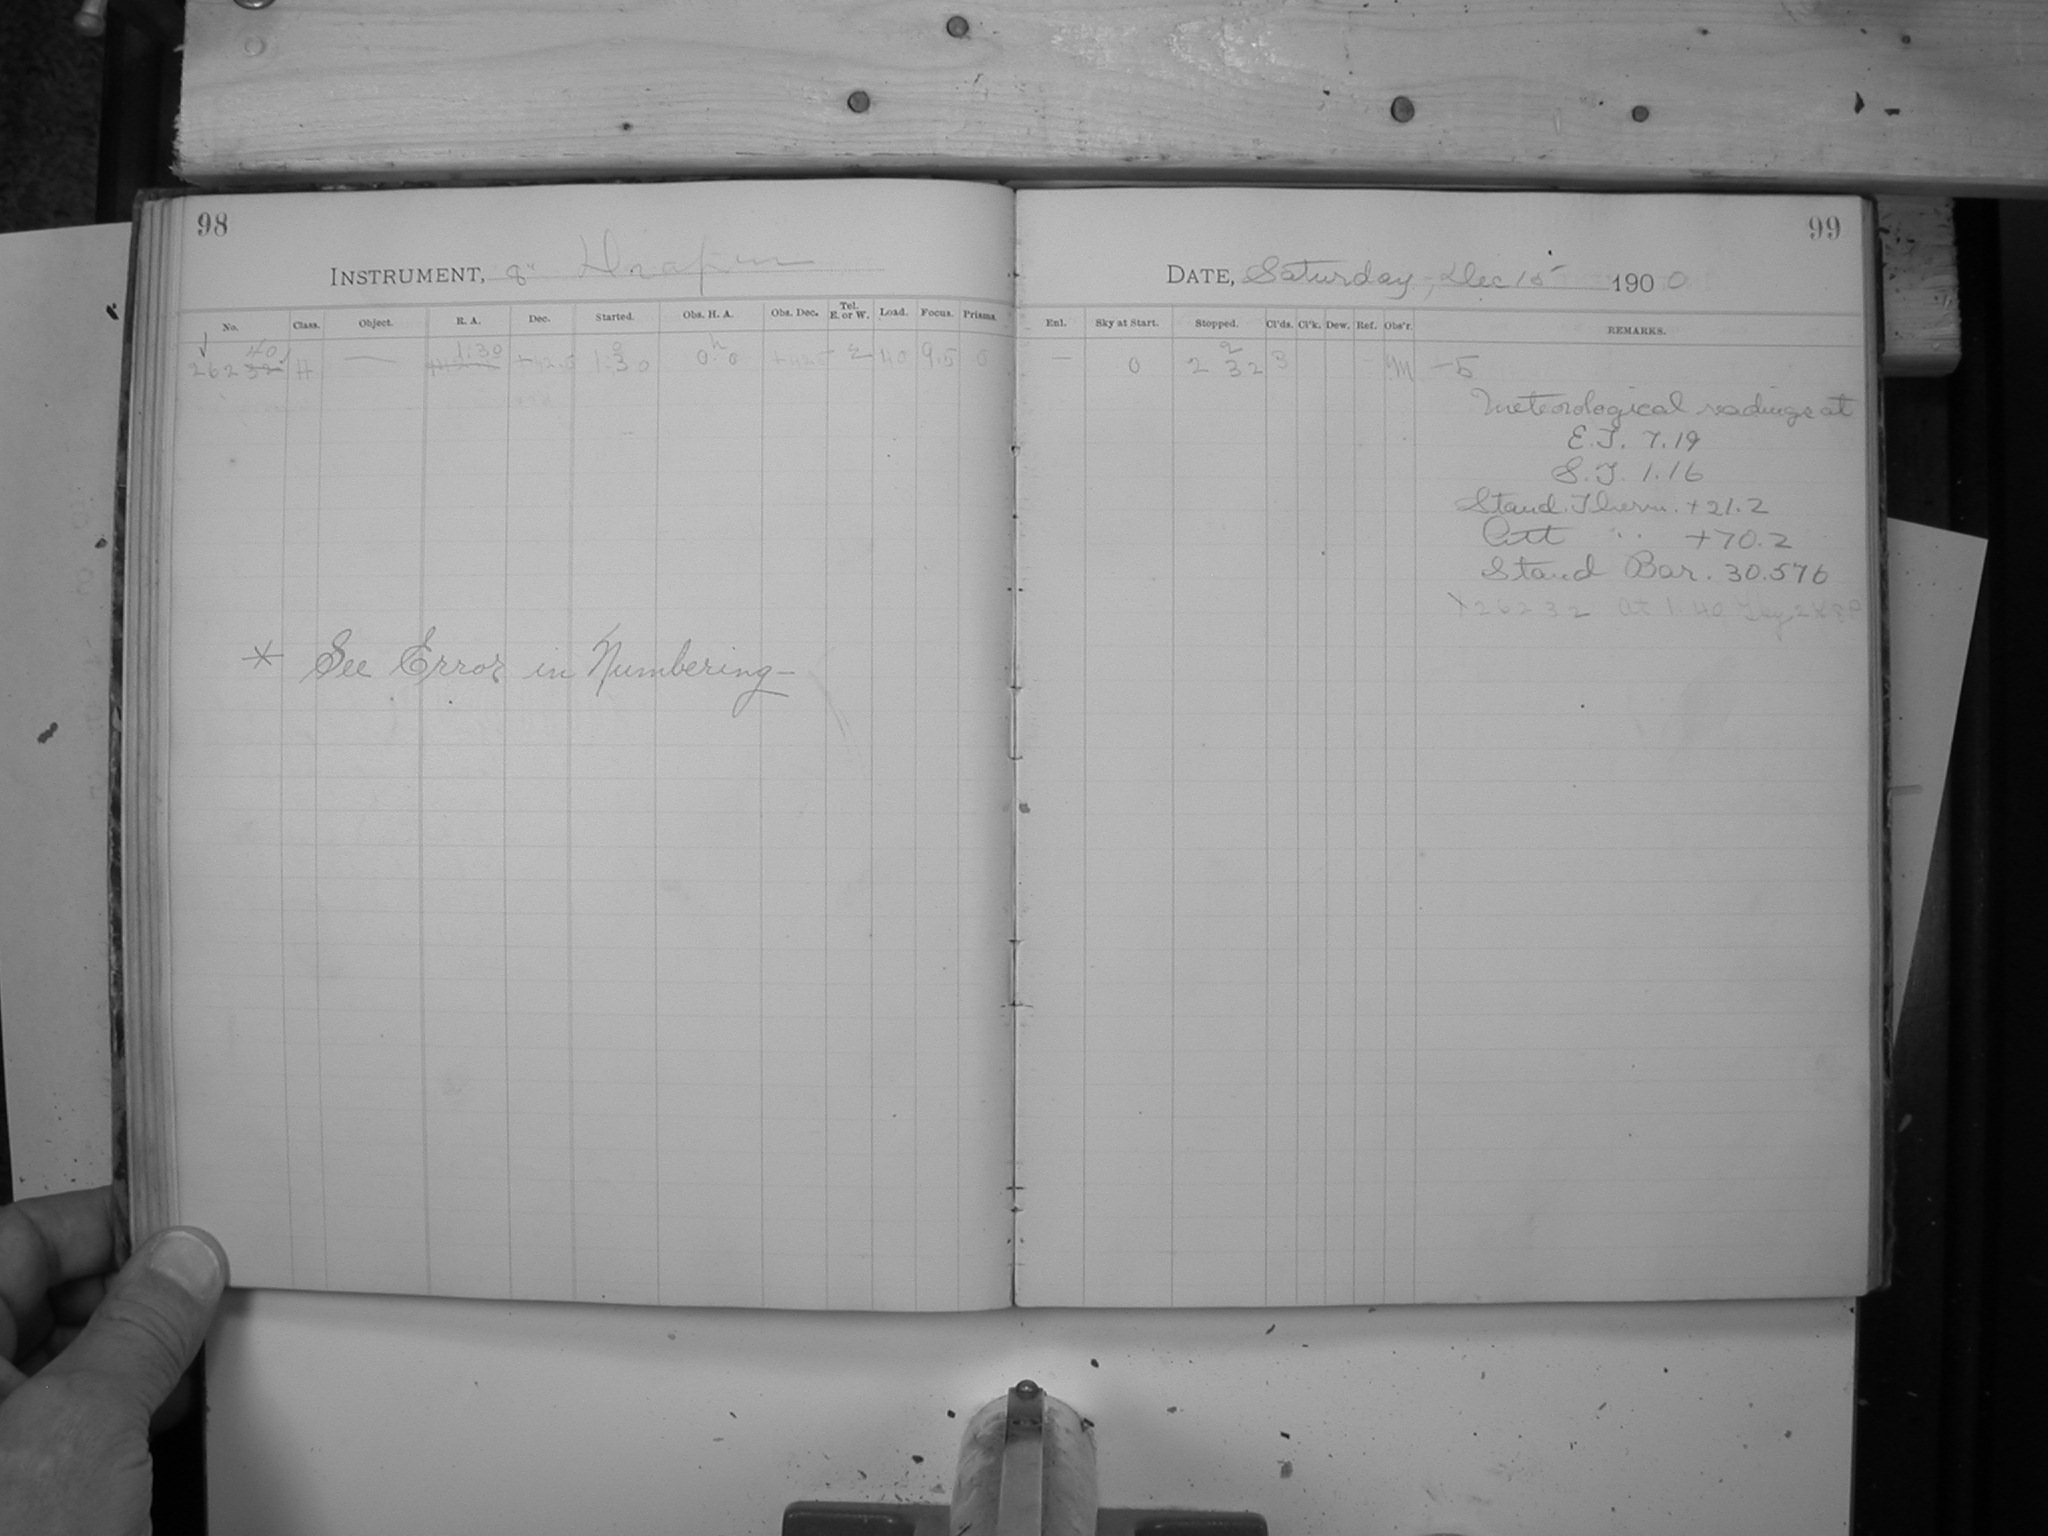 98
INSTRUMENT, 8" Draper
No. Class. Object. R. A. Dec. Started. Obs. H. A. Obs. Dec. Tel. E. or W. Load. Focus. Prisms.
40 1:30
262 32 H — 1:30 0.0 E 40 9.5 0
* See Error in Numbering—
99
DATE, Saturday, Dec 15 1900
Enl. Sky at Start. Stopped. Cl'ds. Cl'k. Dew. Ref. Obs'r. REMARKS.
— 0 2 32 3 M —5
Meteorological readings at
E.T. 7.19
S.T. 1.16
Stand. Therm. +21.2
Att " +70.2
Stand Bar. 30.576
26232 at 1.40